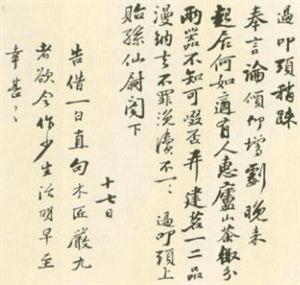 過叩頭稍疎
奉言論傾仰增劇晚來
起居何如適有人惠廬山茶輒分
兩器不知可啜否幷建茗一二品
漫納去不罪浼瀆不一〻過叩頭上
貽孫仙尉閤下
十七日
告借一白直句木匠嚴九
者欲令作少生活明早至
幸甚〻